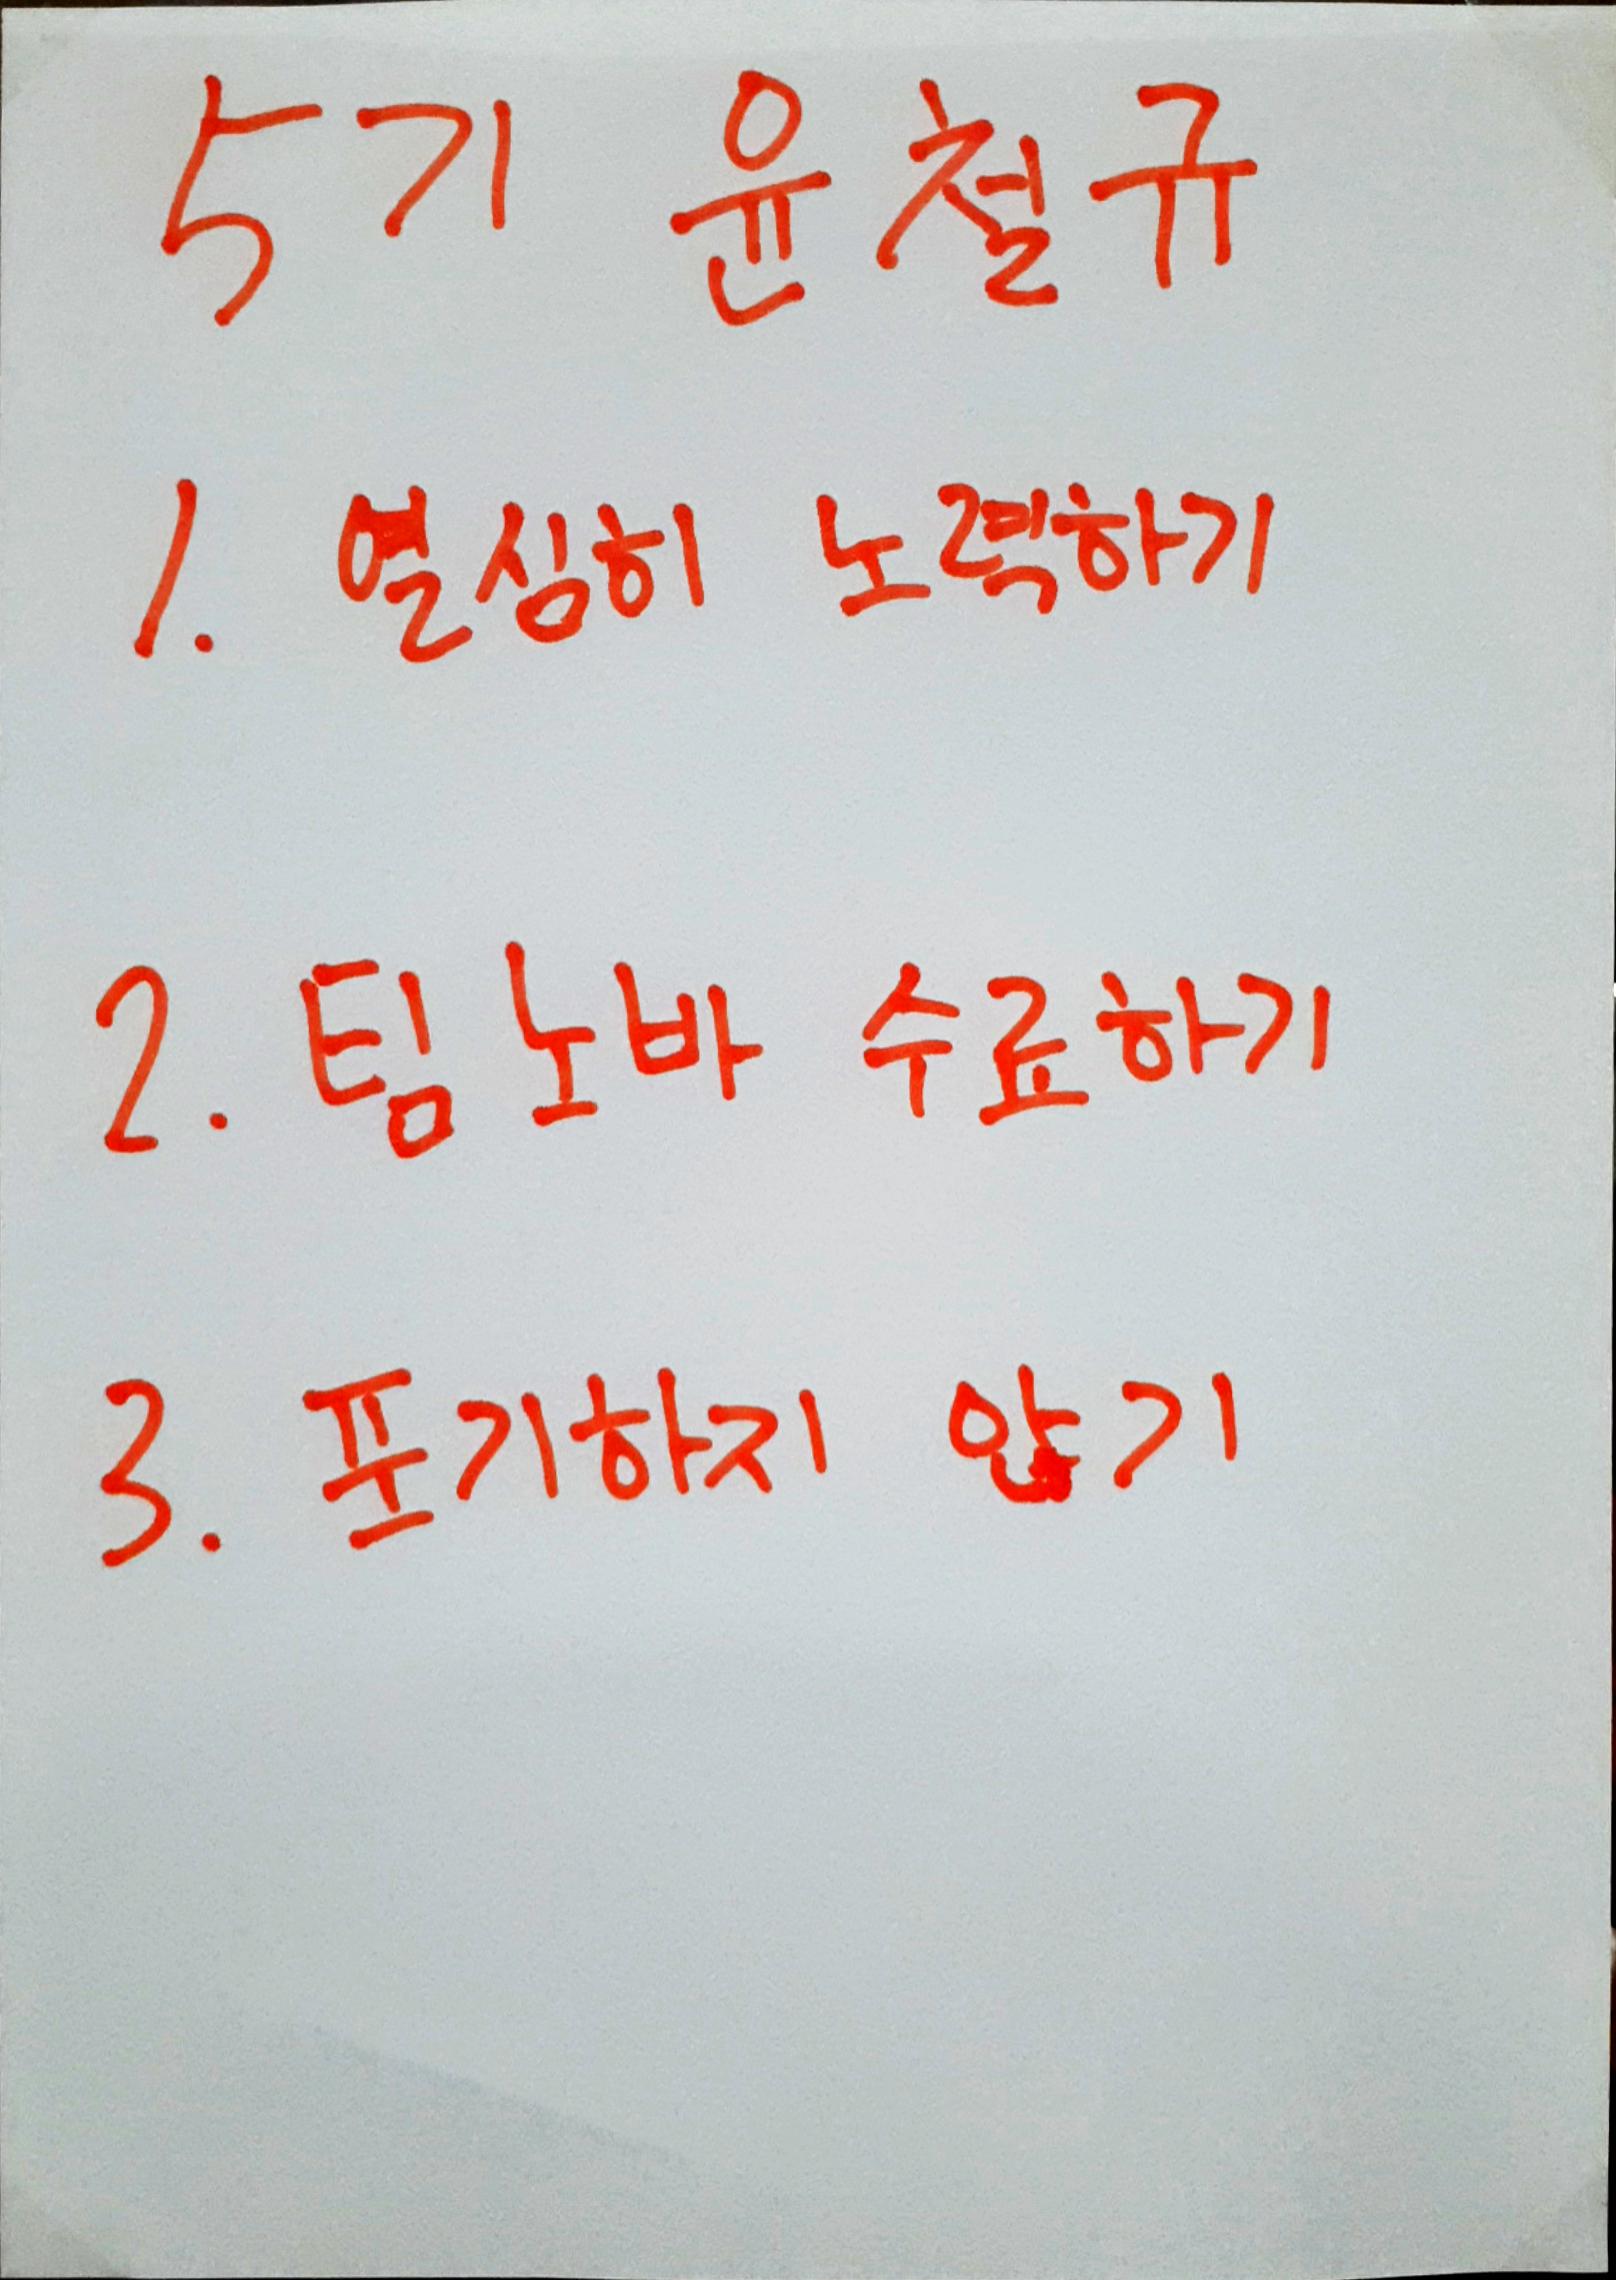 5기 윤철규
1. 열심히 노력하기
2. 팀노바 수료하기
3. 포기하지 않기